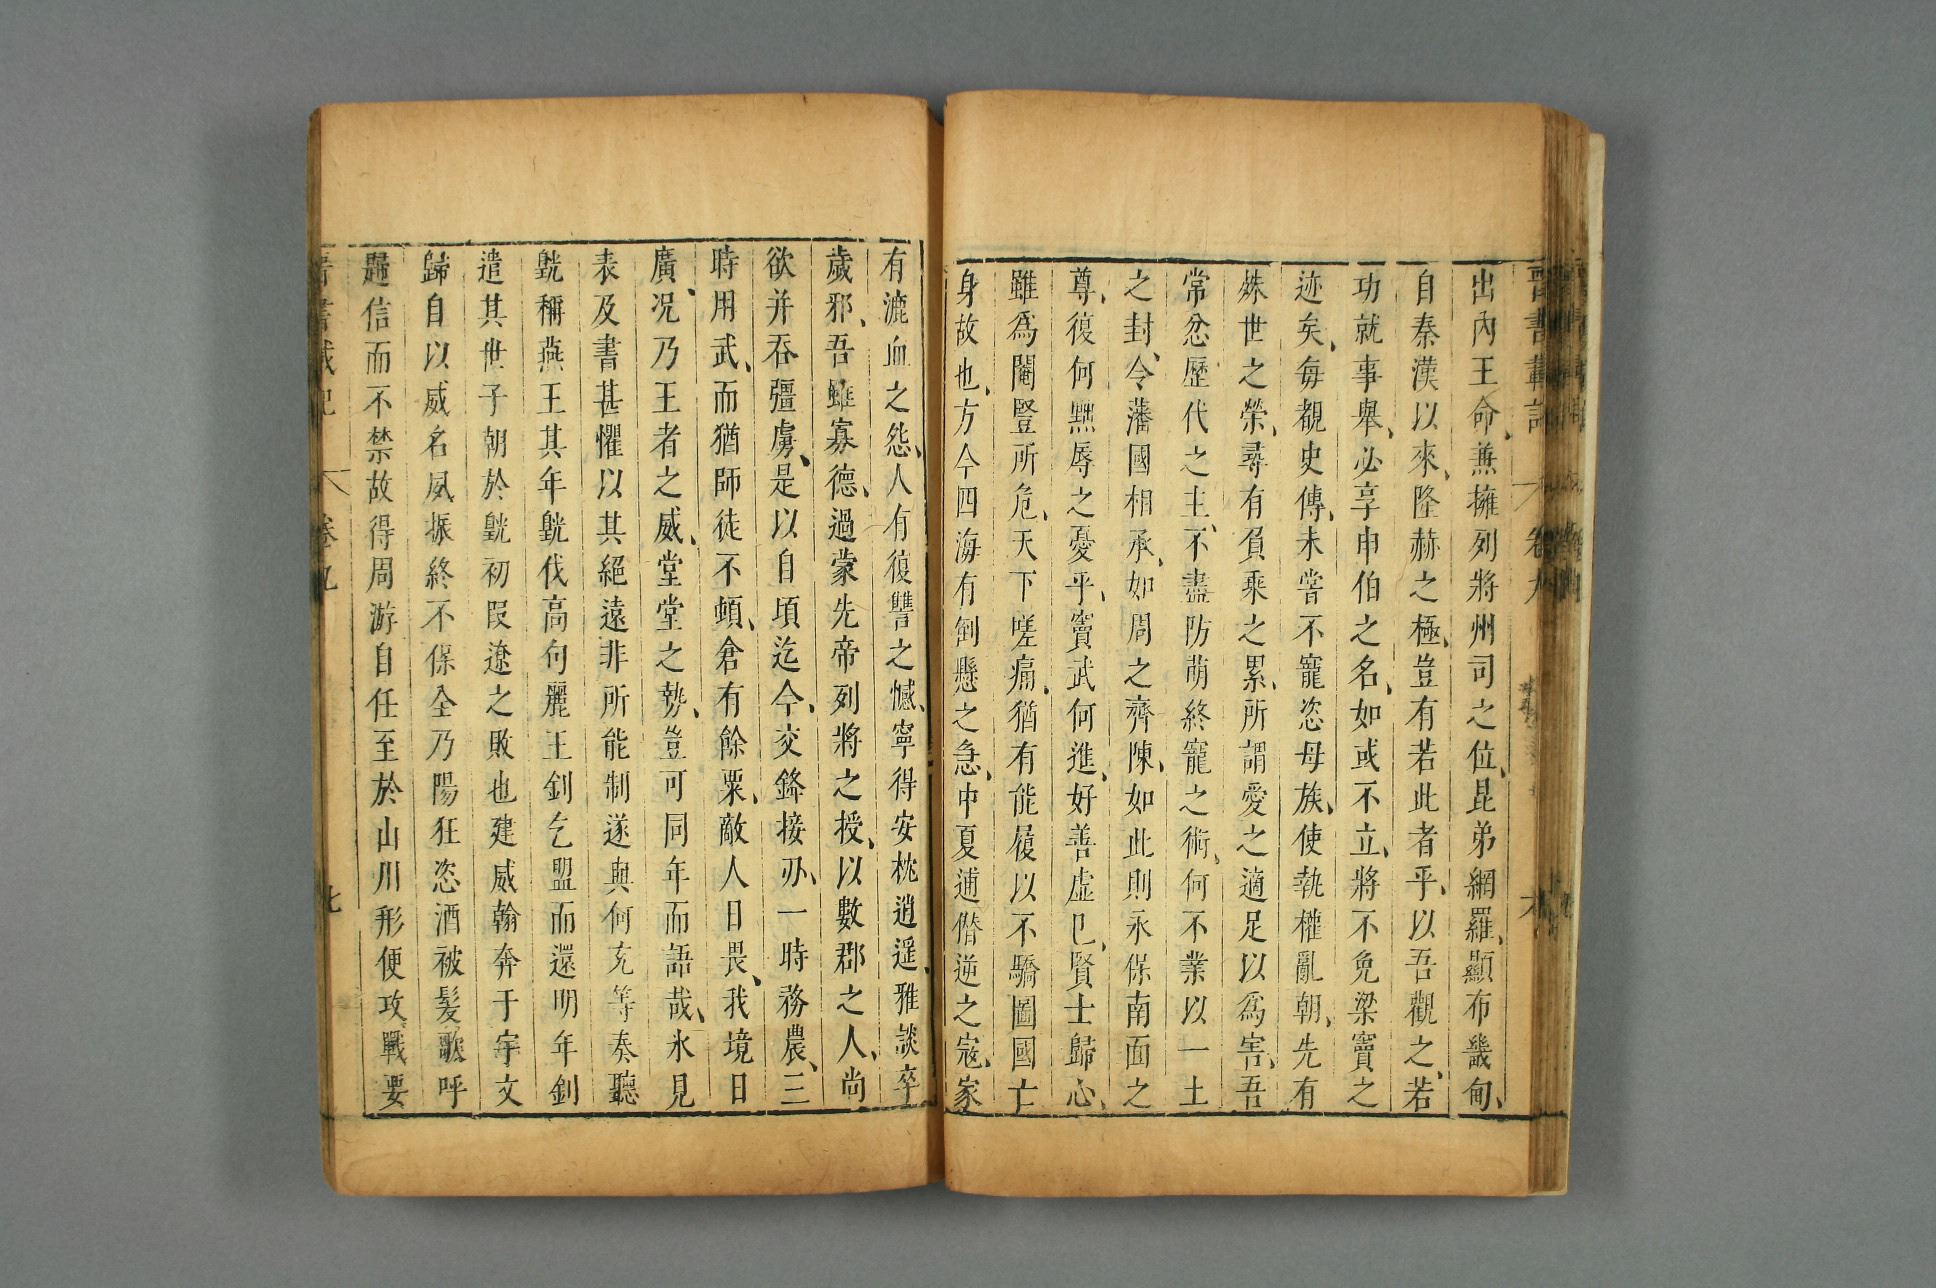 出內王命、兼擁列將州司之位、昆弟網羅、顯布畿甸、
自秦漢以來、隆赫之極、豈有若此者乎、以吾觀之、若
功就事舉、必享申伯之名、如或不立、將不免梁竇之
迹矣、每覩史傳、未嘗不寵恣母族、使執權亂朝、先有
姝世之榮、尋有負乘之累、所謂愛之適足以爲害、吾
常忿歷代之主、不盡防萌終寵之術、何不業以一土
之封、令藩國相承、如周之齊陳、如此則永保南面之
尊、復何黜辱之憂乎、竇武何進、好善虛巳、賢士歸心、
雖爲閹豎所危、天下嗟痛、猶有能履以不驕圖國亡
身故也、方今四海有倒懸之急、中夏逋僭逆之寇、家
有漉血之怨、人有復讐之憾、寧得安枕逍遥、雅談卒
歲邪、吾雖寡德、過蒙先帝列將之授、以數郡之人、尚
欲并吞彊虜、是以自頃迄今、交鋒接刅、一時務農、三
時用武、而猶師徒不頓、倉有餘粟、敵人日畏、我境日
廣、况乃王者之威、堂堂之勢、豈可同年而語哉、氷見
表及書甚懼以其絕遠非所能制遂與何充等奏聽
皝稱燕王其年皝伐高句麗王釗乞盟而還明年釗
遣其世子朝於皝初叚遼之敗也建威翰奔于宇文
歸自以威名夙振終不保全乃陽狂恣酒被髪歌呼
歸信而不禁故得周游自任至於山川形便攻戰要
卷九
七